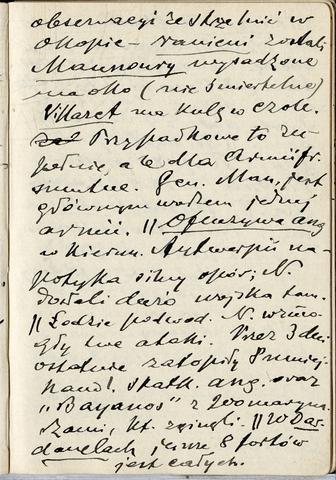 obserwacji ze strzelnic w
okopie – ranieni zostali
Maunoury wysadzone
ma oko (nie śmiertelne)
Villaret ma kulę w czole.
Przypadkowe to zu-
pełnie, ale dla armii fr.
smutne. Gen. Mau. jest
głównym wodzem jednej
armii. || Ofenzywa ang.
w kierun. Antwerpii na-
potyka silny opór; N.
dostali dużo wojska tam.
|| Łodzie podwod. N. wzmo-
gły swe ataki. Przez 3 dni
ostatnie zatopiły 8 mniej.
handl. statk. ang. oraz
„Bayanos" z 200 maryna-
rzami, kt. zginęli. || W Dar-
danelach jeszcze 8 fortów
jest całych.